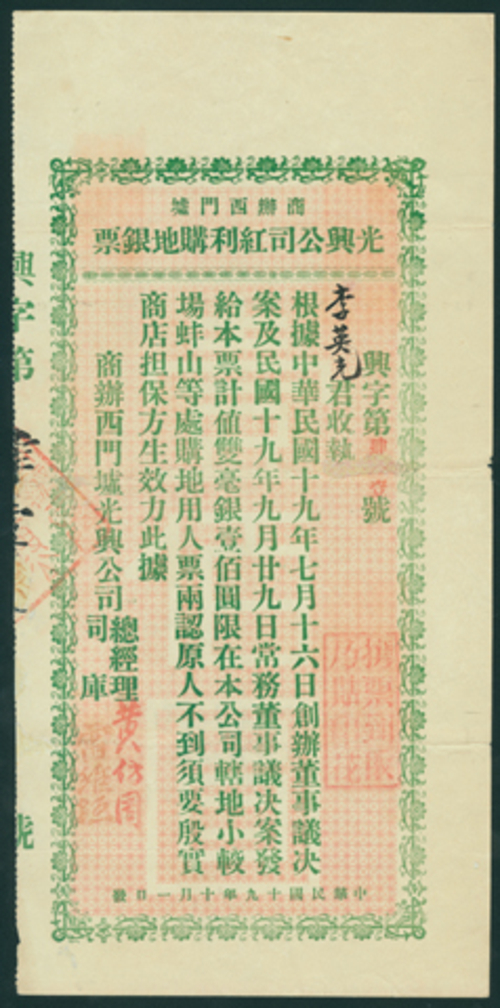 商辦西門墟
光興公司紅利購地銀票
興字第肆壹號
李英克君收執
根據中華民國十九年七月十六日創辦董事議決
案及民國十九年九月廿九日常務董事議決案發
給本票計値雙毫銀壹佰圓限在本公司轄地小較
場蚌山等處購地用人票兩認原人不到須要殷實
商店担保方生效力此據
商辦西門墟光興公司
總經理
司庫
中華民國十九年十月一日發
興字第
號